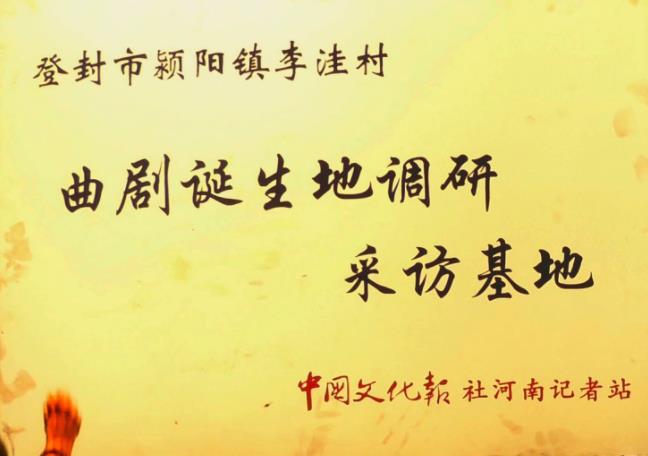 登封市颍阳镇李洼村
曲剧诞生地调研
采访基地
中国文化報社河南记者站